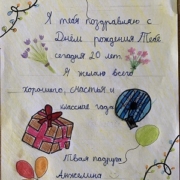 Я тебя поздравляю с
Днём рождения Тебе
сегодня 20 лет
Я желаю всего
хорошего, счастья и
классное года
Твая подруга
Анжелина